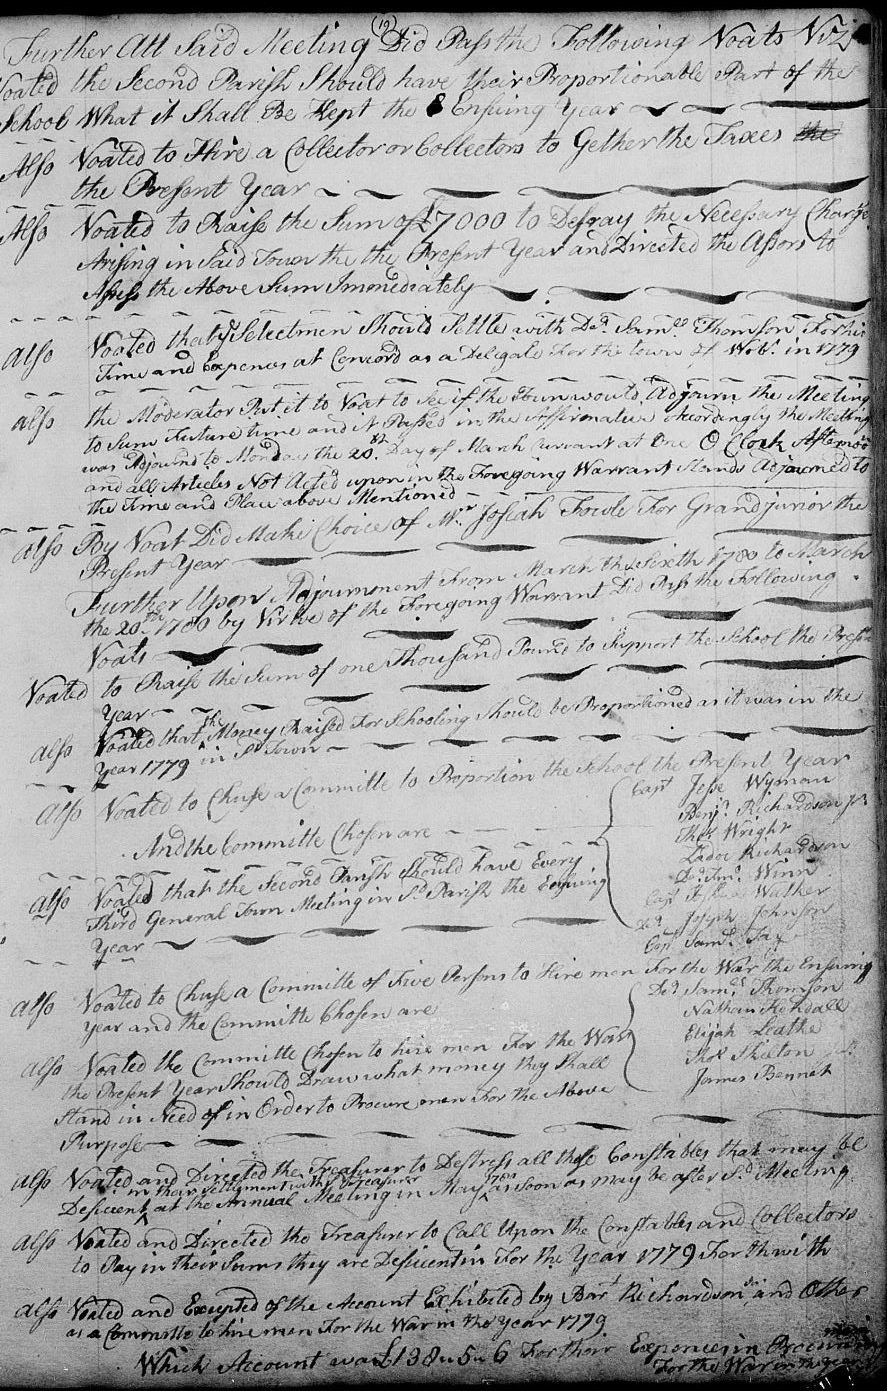 (19)
Further Att Said Meeting Did Pass the Following Voats Viz
Voated the Second Parish Should have their Proportionable Part of the
School What it Shall Be Kept the Ensuing Year
Also Voated to Hire a Collector or Collectors to Gether the Taxes the
the Present Year
Also Voated to Raise the Sum of £7000 to Defray the Necessary Charge
Arising in Said Town the the Present Year and Directed the Assors to
Assess the Above Sum Immediately
Also Voated that ye Selectmen Should Settle with Dea. Samll Thomson For his
Time and Expences at Concord as a Deligate For the town of Wob. in 1779
also the Moderator Put it to Voat to See if the Town would Adjourn the Meeting
to Sum Future time and it Passed in the Affirmative Accordingly the Meeting
was Adjournd to Monday the 20th Day of March Currant at One O Clock Afternoon
and all Articles Not Acted upon in the Foregoing Warrant Stands Adjourned to
the time and Place above Mentioned
also By Voat Did Make Choice of Mr Josiah Fowle For Grandjurior the
Present Year
Further Upon Adjournment From March the Sixth 1780 to March
the 20th 1780 by Virtue of the Foregoing Warrant Did Pass the Following
Voats
Voated to Raise the Sum of one Thousand Pound to Support the School the Present
Year
also Voated that the Money Raised For Schooling Should be Proportioned as it was in the
Year 1779 in Sd Town
Also Voated to Chuse a Committe to Proportion the School the Present Year
And the Committe Chosen are
Capt Jesse Wyman
Benjn Richardson Jr
Thos Wright
Zadoc Richardson
Dea. Tim. Winn
Capt Joshua Walker
Dea. Joseph Johnson
Capt Saml Tay
also Voated that the Second Parish Should have Every
Third General Town Meeting in Sd Parish the Ensuing
Year
also Voated to Chuse a Committe of Five Persons to Hire men For the War the Ensuing
Year and the Committe Chosen are
Dea. Saml Thomson
Nathan Kendall
Elijah Leathe
Thos Skelton
James Bennet
also Voated the Committe Chosen to hire men For the War
the Present Year Should Draw what money they Shall
Stand in Need of in Order to Procure men For the Above
Purpose
also Voated and Directed the Treasurer to Destress all those Constables that may be
Deficient in their Settlement with ye Treasurer at the Annual Meeting in May as Soon as may be after Sd Meeting
also Voated and Directed the Treasurer to Call Upon the Constables and Collectors
to Pay in their Sums they are Deficient in For the Year 1779 Forthwith
also Voated and Excepted of the Account Exhibited by Bart Richardson and Other
as a Committe to hire men For the War in the year 1779
Which Account was £138 „ 5 „ 6 For their Expences in Procuring men
For the War in the year